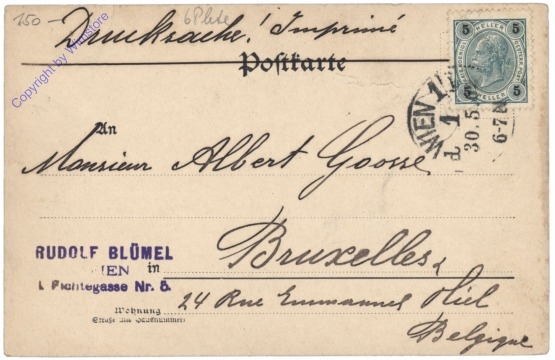 150-
6 Plete
Drucksache! Imprimé
Copyright by Wnistore
Postkarte
5 5
HELLER
5 5
HELLER
WIEN 1/1
1
d
30.5
6-7.N
An
Monsieur Albert Goosse
RUDOLF BLÜMEL
WIEN
I. Fichtegasse Nr. 5.
in Bruxelles
24 Rue Emmanuel Hiel
Wohnung
Straße und Hausnummer
Belgique